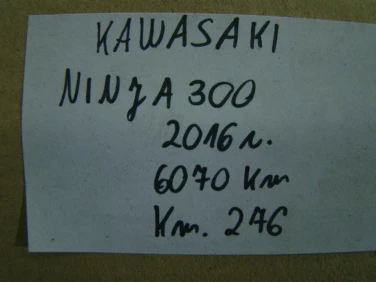 KAWASAKI
NINJA 300
2016 r.
6070 Km
Km. 246